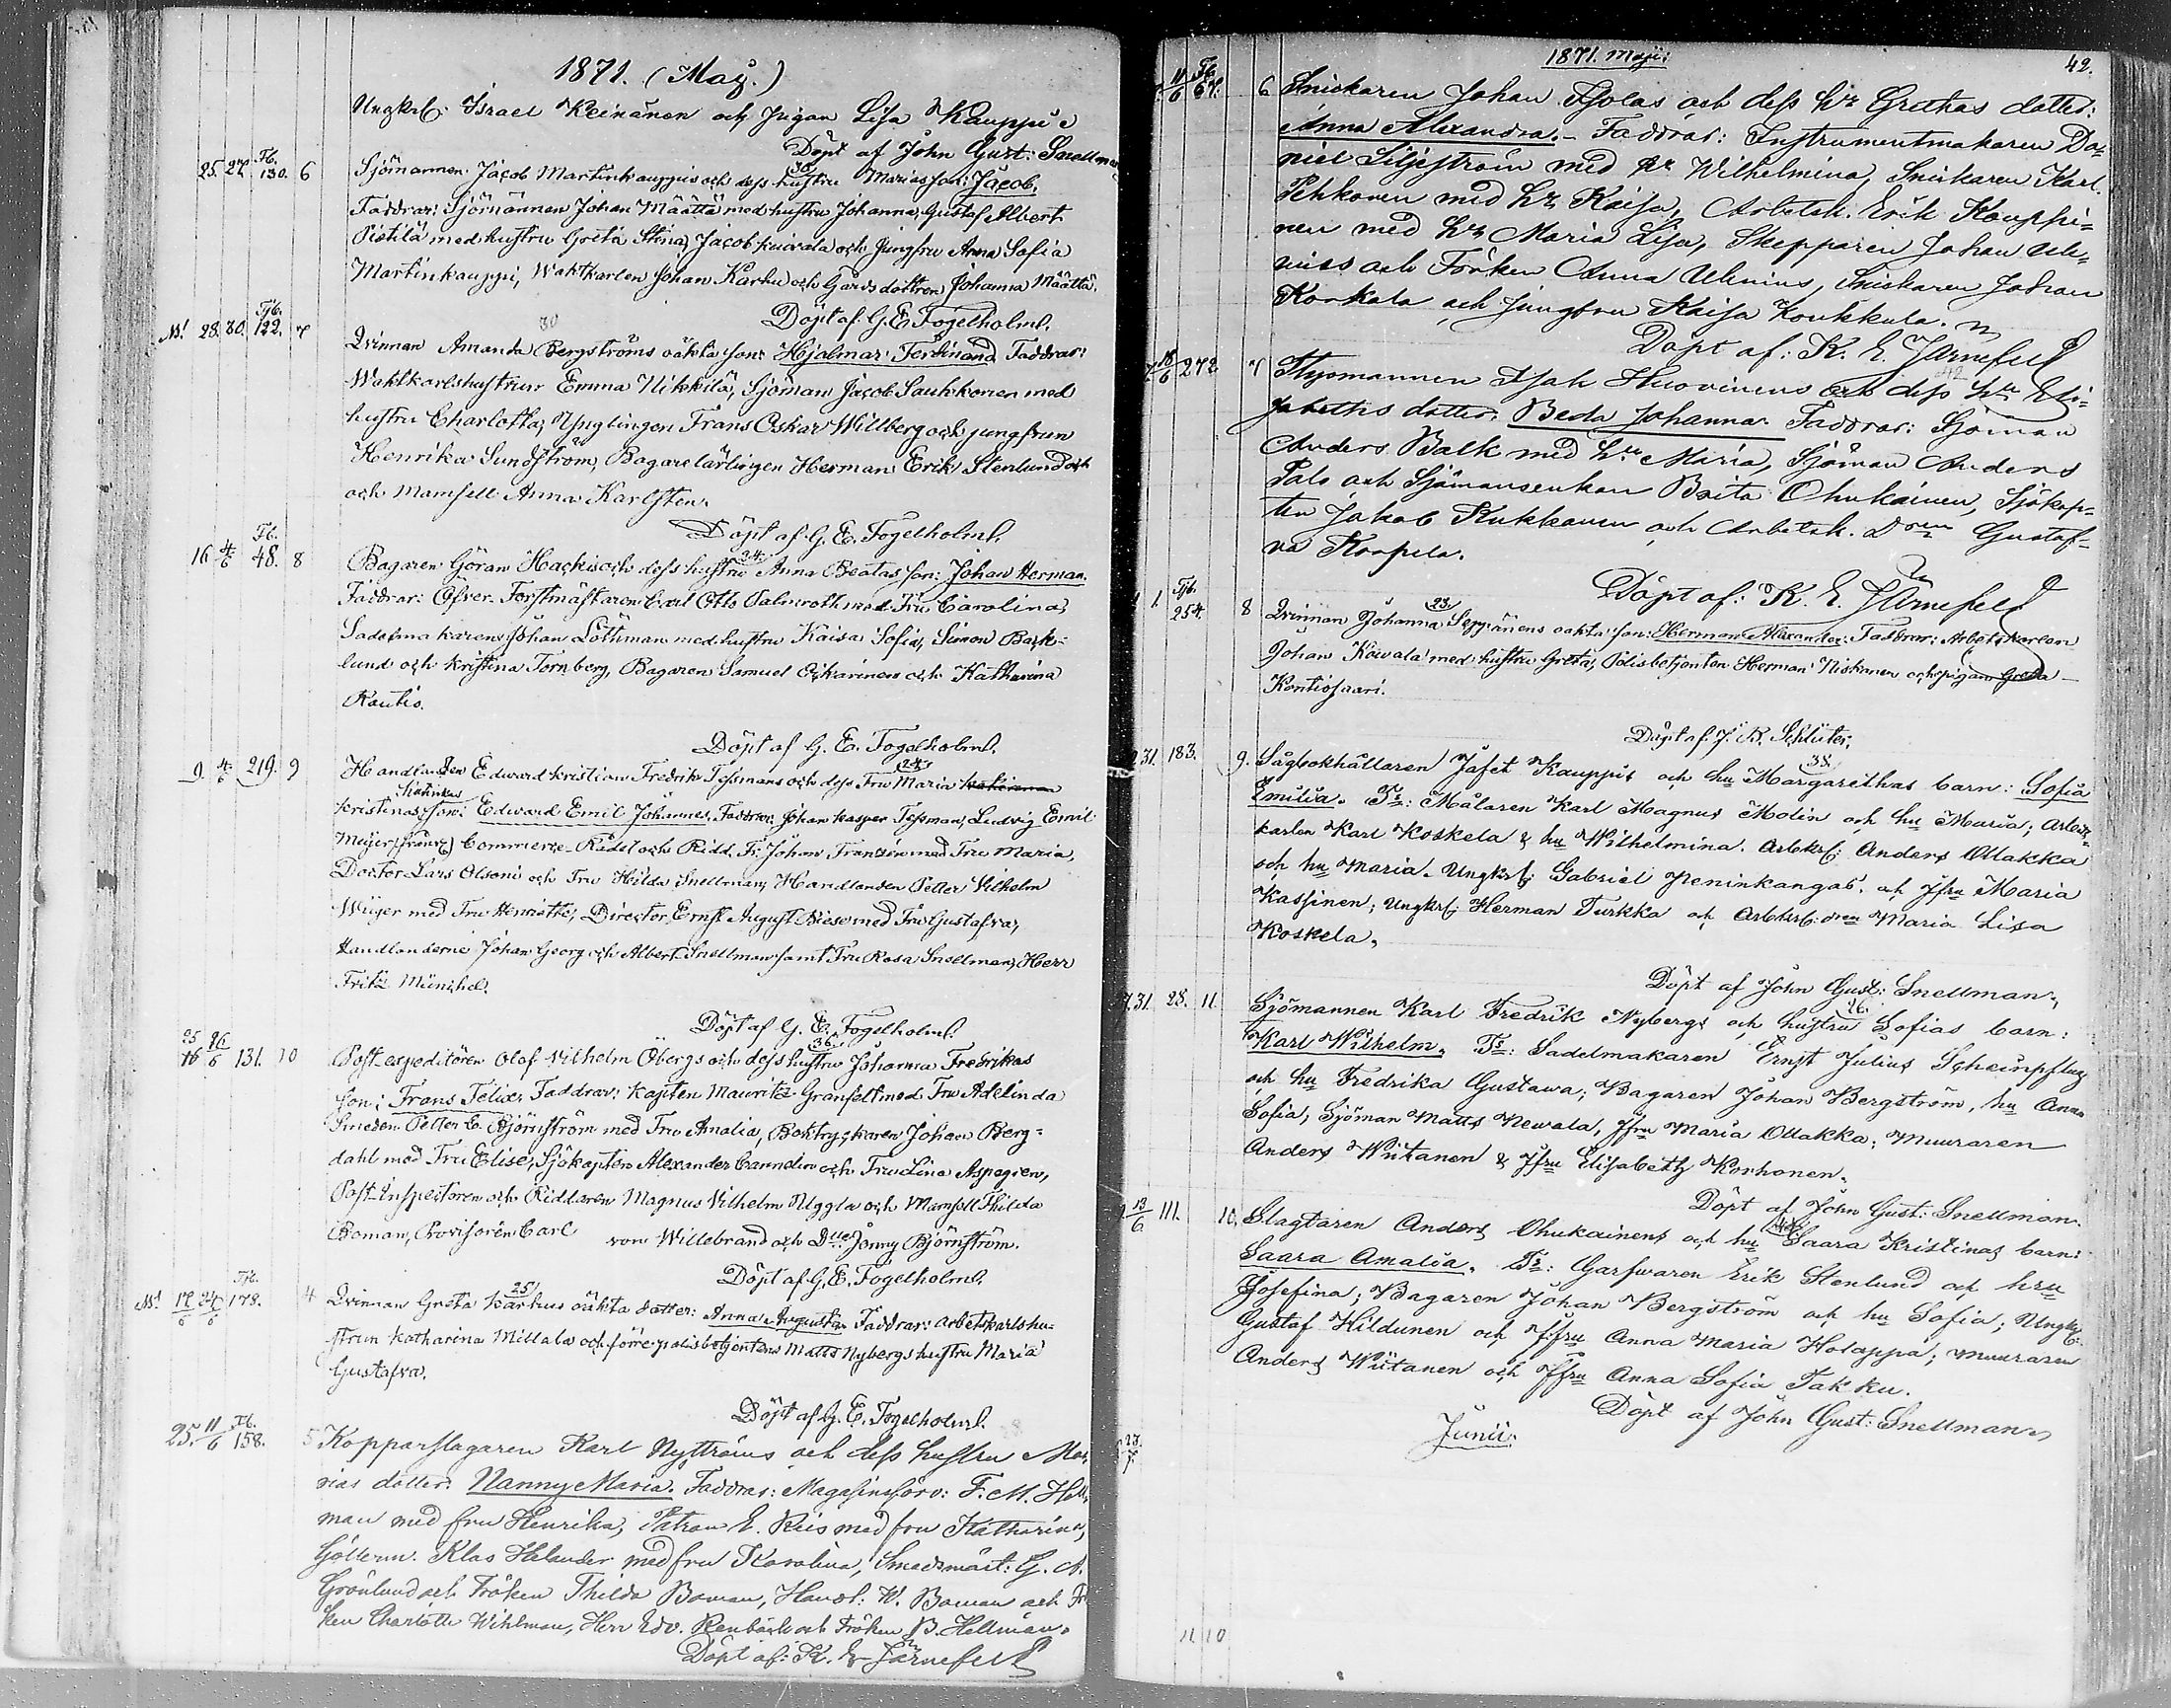 1871. (Maij.)
Ungkrl: Israel Keinänen och Pigan Lisa Kauppi
Döpt af John Gust: Snellman
25. 27. Tb. 130. 6 Sjömannen Jacob Martinkauppis och dess hustru Marias son: Jacob.
Faddrar: Sjömannen Johan Määttä med hustru Johanna, Gustaf Albert
Pistilä med hustru Greta Stina, Jacob Kuivala och Jungfru Anna Sofia
Martinkauppi, Waktkarlen Johan Karhu och Gårds dottren Johanna Määttä.
Döpt af G. E. Fogelholm.
28. 30. Tb. 122. 7 30
Qvinnan Amanda Bergströms oäkta son: Hjalmar Ferdinand Faddrar:
Waktkarlshustrun Emma Nikkilä, Sjöman Jacob Saukkonen med
hustru Charlotta, Ynglingen Frans Oskar Willberg och jungfrun
Henrika Sundström, Bagarelärlingen Herman Erik Stenlund och
och Mamsell Anna Karlsten.
Döpt af G. E. Fogelholm.
16 4/6 Tb. 48. 8 Bagaren Göran Hackis och dess hustru 34 Anna Beatas son: Johan Herman.
Faddrar: Öfver Forstmästaren Carl Otto Palmroth med Fru Carolina,
Sadelmakaren Johan Löthman med hustru Kaisa Sofia, Simon Back-
lund och Kristina Tornberg, Bagaren Samuel Oikarinen och Katharina
Rautio.
Döpt af G. E. Fogelholm.
9. 4/6 219. 9 Handlanden Edward Kristian Fredrik Tessmans och dess Fru 24 Maria
Kristinas son: Edward Emil Johannes. Faddrar: Johan Kasper Tessman, Ludvig Emil
Meijer, Commerce-Rådet och Ridd. Fr. Johan Franzén med Fru Maria,
Doctor Lars Olsoni och Fru Hilda Snellman, Handlanden Petter Vilhelm
Weijer med Fru Henriette, Director Ernst August Biese med Fru Gustafva,
Handlanderne Johan Georg och Albert Snellman samt Fru Rosa Snellman, Herr
Fritz Münchel.
Döpt af G. E. Fogelholm.
25 16 26/6 131. 10 Post expeditören Olof Vilhelm Öbergs och dess hustru 36 Johanna Fredrikas
son: Frans Felix. Faddrar: Kapten Mauritz Granfelt med Fru Adelinda
Smeden Petter E. Björnström med Fru Amalia, Boktryckaren Johan Berg-
dahl med Fru Elise, Sjökapten Alexander Cannelin och Fru Lina Aspegren,
Post-Inspectoren och Riddaren Magnus Vilhelm Uggla och Mamsell Thilda
Boman, Provisoren Carl von Willebrand och Dlle Jenny Björnström.
Döpt af G. E. Fogelholm.
17/6 24/6 Tb. 178. 4 Qvinnan Greta Karhus 25 oäkta dotter: Anna Augusta Faddrar: Arbetskarlshu-
strun Katharina Millala och förre polisbetjenten Matts Nybergs hustru Maria
Gustafva.
Döpt af G. E. Fogelholm.
25. 11/6 Tb. 158. 5 Kopparslagaren Karl Nyströms och dess hustru Ma-
rias dotter: Nanny Maria. Faddrar: Magasinsförv: F. M. Hell-
man med fru Henrika, Patron E. Reis med fru Katharina,
Göllerm. Klas Helander med fru Karolina, Smedsmäst: G. A.
Grönlund och Fröken Thilda Boman, Handl: W. Boman och Frö-
ken Charlotte Wihlman, Herr Edv. Renbäck och Fröken B. Hellman.
Döpt af: K. E. Järnefelt
1871. Maji: 42.
11/6 Tb. 67. 6 Snickaren Johan Kjolas och dess hu Grethas dotter:
Anna Alexandra. – Faddrar: Instrumentmakaren Da-
niel Liljeström med hu Wilhelmina, Snickaren Karl
Pehkonen med hu Kaisa, Arbetsk. Erik Kauppi-
nen med hu Maria Lisa, Skepparen Johan Ule-
nius och Fröken Anna Ulenius, Snickaren Johan
Korkala och jungfru Kaisa Koukkula.
Döpt af: K. E. Järnefelt
18/6 272. 7 Styrmannen Isak Huovinens och dess hu Eli-
sabeths dotter: Beda Johanna. Faddrar: Sjöman
Anders Balk med hu Maria, Sjöman Anders
Palo och Sjömansenkan Brita Ohukainen, Sjökap-
ten Jakob Kukkonen och Arbetsk. Dren Gustaf-
va Korpela.
Döpt af: K. E. Järnefelt
1. Tb. 254. 8 Qvinnan Johanna 23. Seppänens oäkta son: Herman Alexander. Faddrar: Arbetskarlen
Johan Kowala med hustru Greta, Polisbetjenten Herman Niskanen och pigan Greta
Kontiosaari.
Döpt af J. R. Schlüter.
31. 183. 9. Sågbokhållaren Jafet Kauppis och hu 38 Margarethas barn: Sofia
Emilia. Fr: Målaren Karl Magnus Molin och hu Maria; Arbets-
karlen Karl Koskela & hu Wilhelmina. Arbkrl: Anders Ollakka
och hu Maria. Ungkrl: Gabriel Peninkangas. och Jfru Maria
Kassinen; Ungkrl: Herman Turkka och Arbkrl: dren Maria Lisa
Koskela.
Döpt af John Gust: Snellman.
31. 28. 11. Sjömannen Karl Fredrik Nybergs och hustru 26 Sofias barn:
Karl Wilhelm. Fr: Sadelmakaren Ernst Julius Scheinpflug
och hu Fredrika Gustawa; Bagaren Johan Bergström, hu Anna
Sofia, Sjöman Matts Newala, Jfru Maria Ollakka; Muuraren
Anders Wiitanen & Jfru Elisabeth Korhonen.
Döpt af John Gust: Snellman.
13/6 111. 10. Slagtaren Anders Ohukainens och hu Saara Kristinas barn:
Saara Amalia. Fr: Garfwaren Erik Stenlund och hru
Josefina; Bagaren Johan Bergström och hu Sofia; Ungkrl:
Gustaf Hildunen och Jfru Anna Maria Holappa; Muuraren
Anders Wiitanen och Jfru Anna Sofia Takku.
Döpt af John Gust: Snellman.
Junii:
11. 10